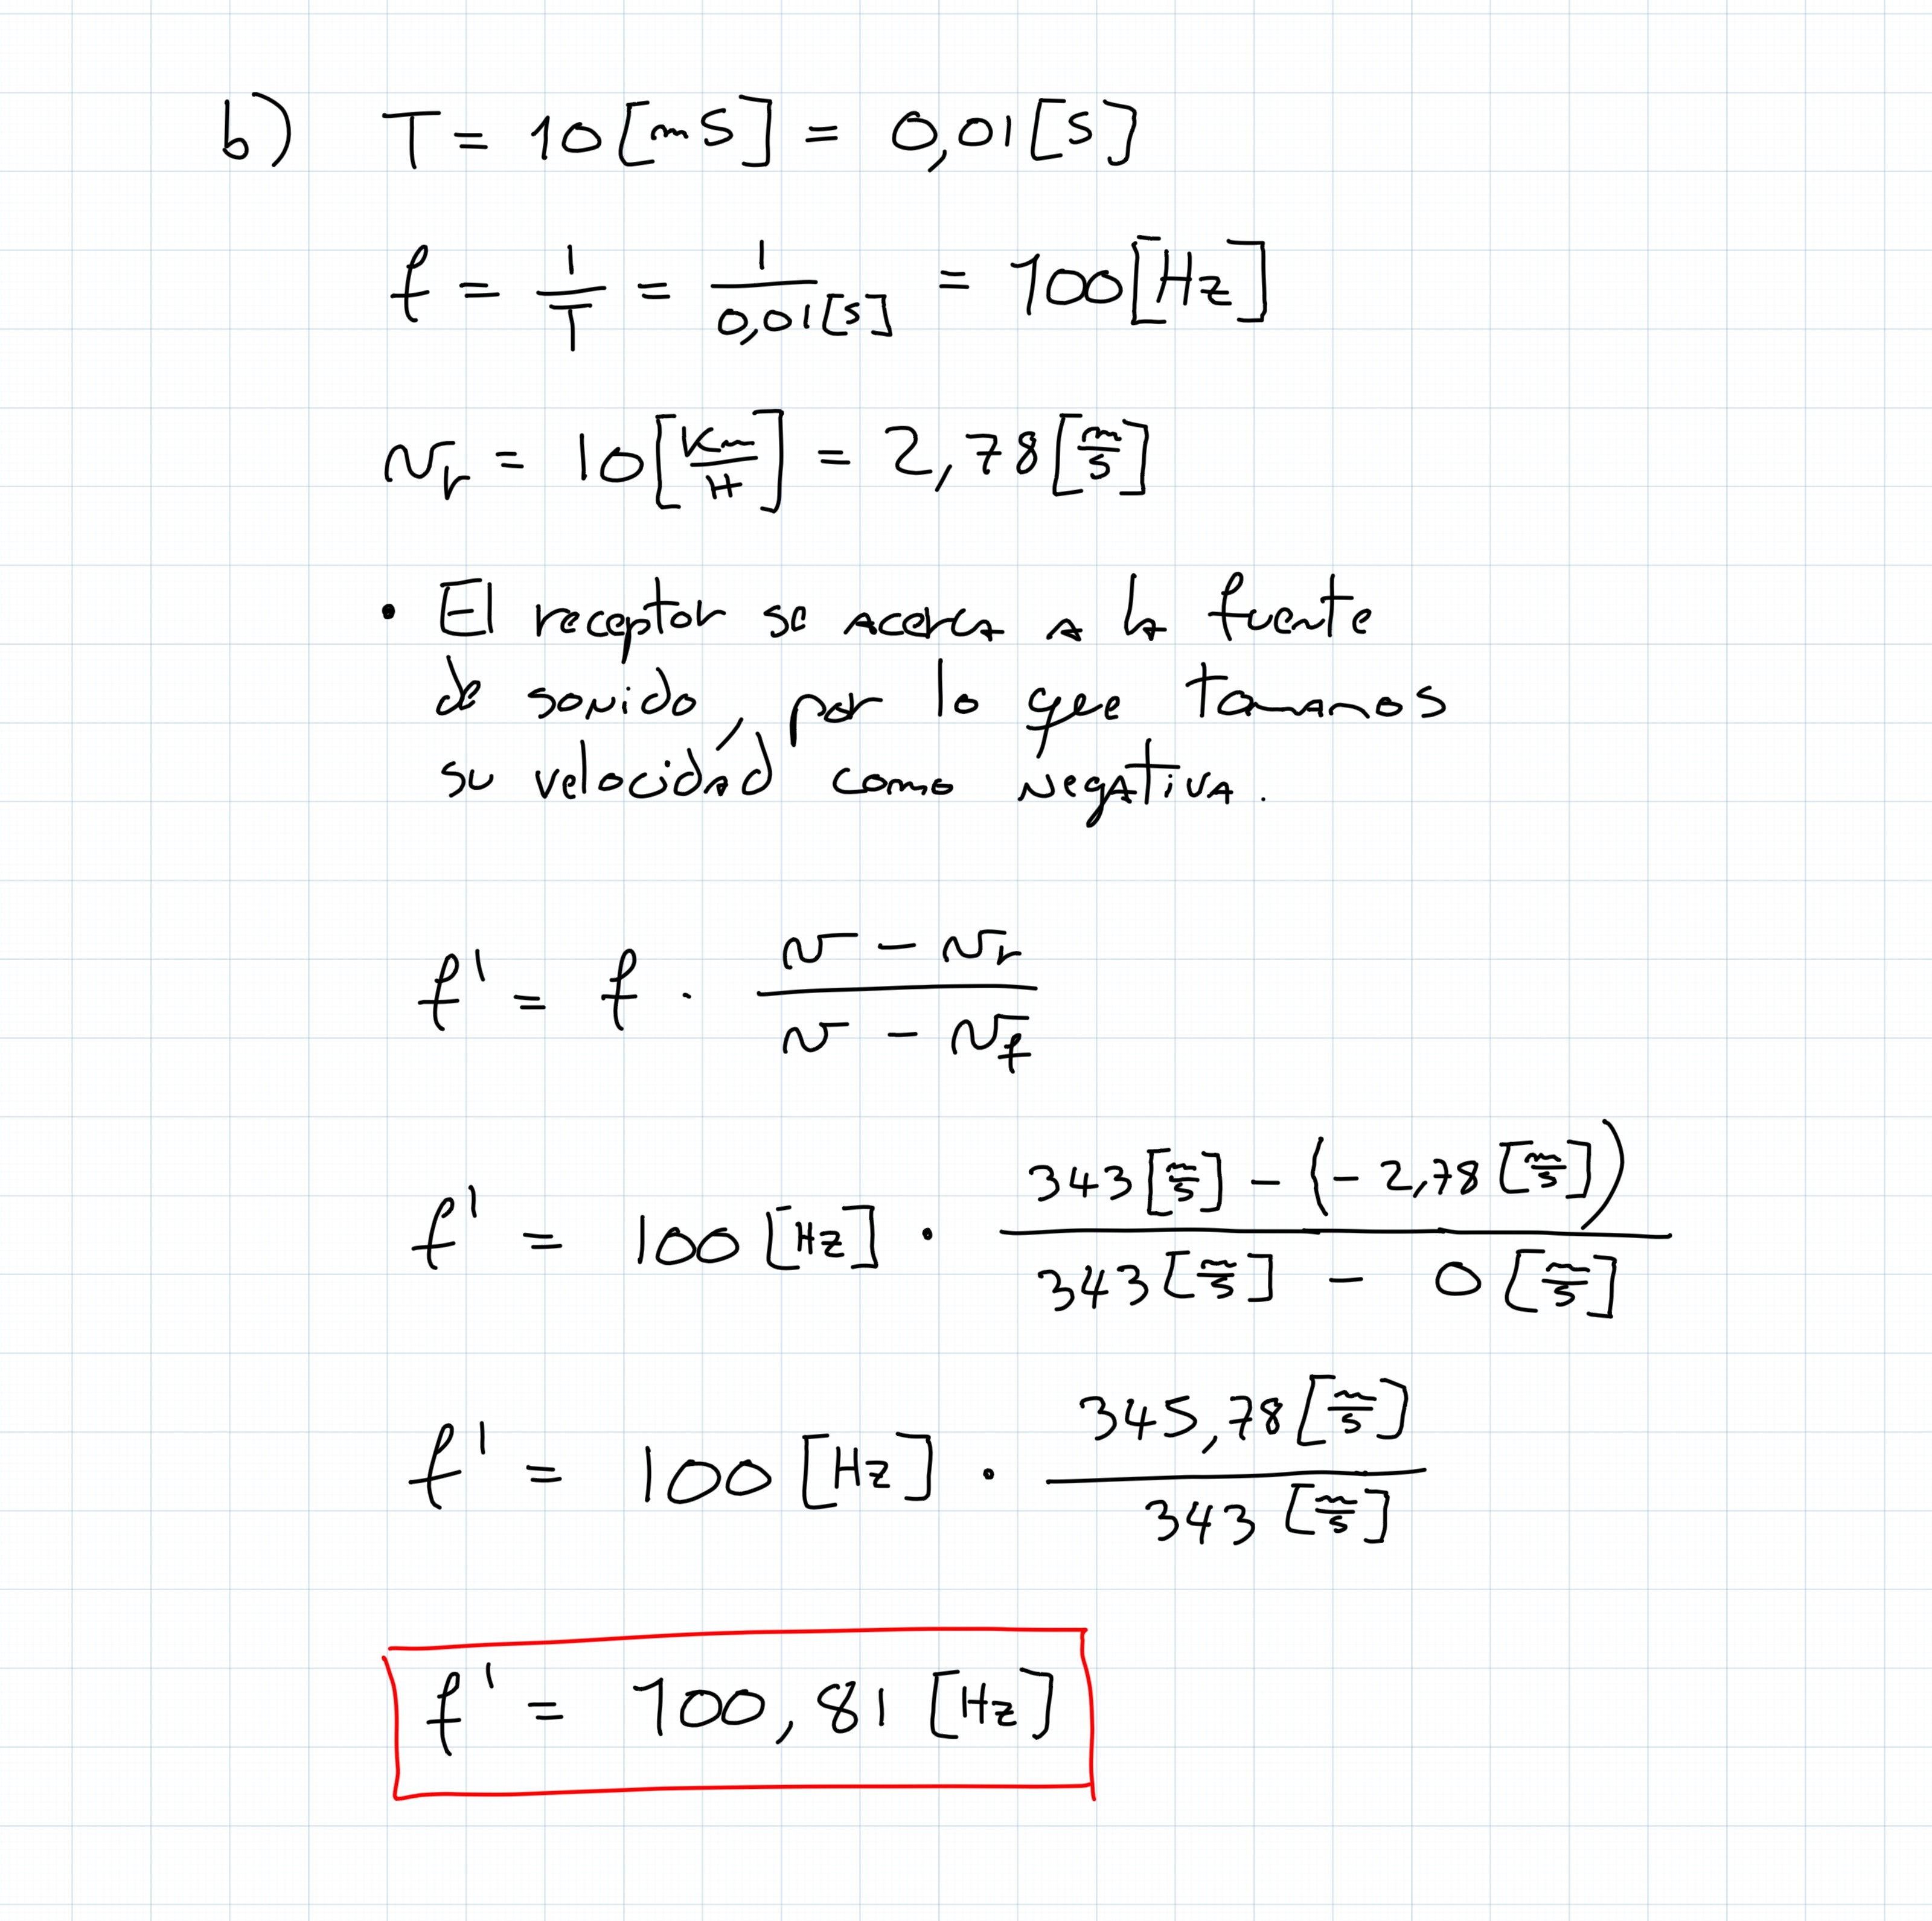 b) T = 10 [mS] = 0,01 [s]
f = 1/T = 1/0,01[s] = 100 [Hz]
v_r = 10 [Km/H] = 2,78 [m/s]
• El receptor se acerca a la fuente
de sonido, por lo que tomamos
su velocidad como negativa.
f' = f · (v - v_r)/(v - v_f)
f' = 100 [Hz] · (343 [m/s] - (-2,78 [m/s]))/(343 [m/s] - 0 [m/s])
f' = 100 [Hz] · 345,78 [m/s]/343 [m/s]
f' = 100,81 [Hz]